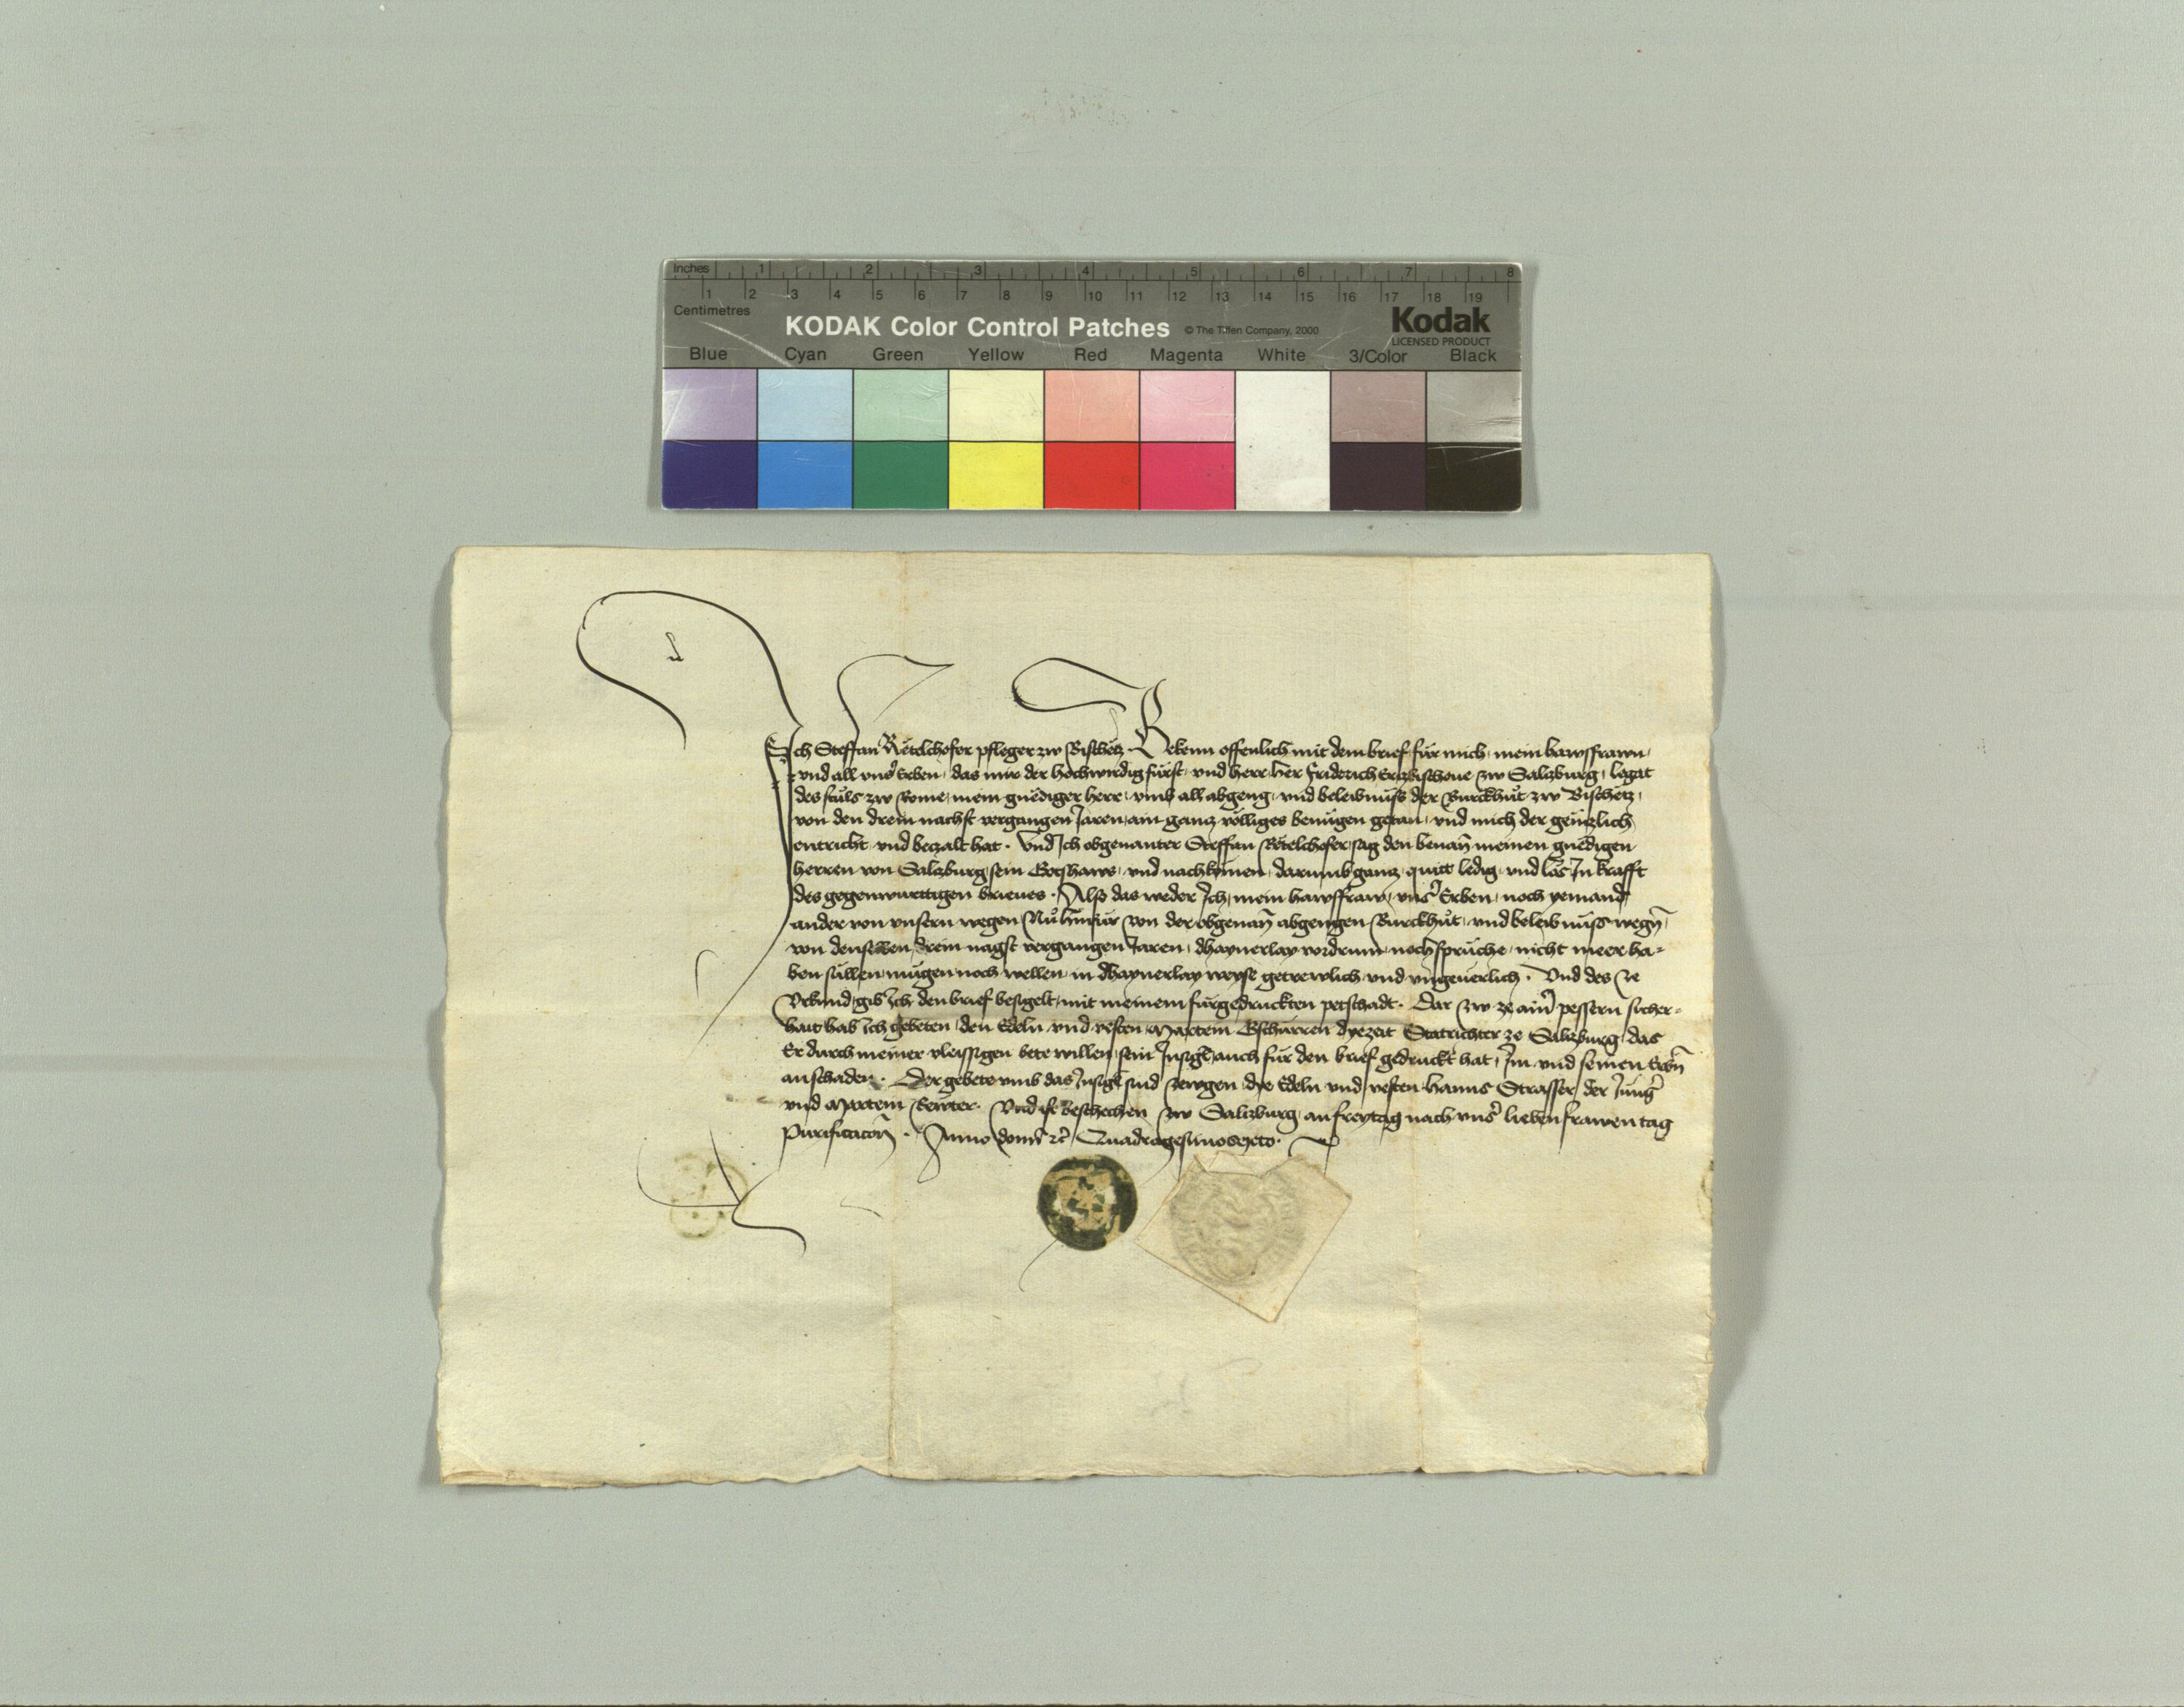 Inches 1 2 3 4 5 6 7 8
1 2 3 4 5 6 7 8 9 10 11 12 13 14 15 16 17 18 19
Centimetres
KODAK Color Control Patches © The Tiffen Company, 2000 Kodak
LICENSED PRODUCT
Blue Cyan Green Yellow Red Magenta White 3/Color Black
Ich Steffan Rëtelchofer pfleger zw Vischëtz Bekenn offenlich mit dem brief für mich mein hawsfrawn
und all unser Erben das mir der hochwirdig fürst und herr her Friderich Erczbischoue zw Salczburg legat
des stüls zw Rome mein gnëdiger herr umb all abgeng und beleibnüss der Burckhůt zw Vischëtz
von den drein nachst vergangen Jaren ain gancz völliges benügen getan und mich der genczlich
entricht und beczalt hat. Und Ich obgenanter Steffan Rëtelchofer sag den benan̄ meinen gnëdigen
herren von Salczburg sein Gotshaws und nachkomen darumb gancz quitt ledig und los In krafft
des gegenwurttigen brieues. Also das weder Ich mein hawsfraw uns̕ Erben noch yemand
ander von unsern wegen Nu hinfür von der obgenan̄ abgengen Burckhůt und beleibnüss wegn̄
von denselben drein nagst vergangen Jaren dhaynerlay vordrunn noch sprüche nicht meer ha=
ben süllen mügen noch wellen in dhaynerlay weyse getrewlich und ungeuerlich. Und des ze
Urkund gib Ich den brief besigelt mit meinem fürgedruckten petschadt. Dar zw ze ain̕ pessern sicher=
hait hab Ich gebeten den Edeln und vesten Martein Gschurren dyezeit Statrichter ze Salczburg das
Er durch meiner vleissigen bete willen sein Insigl auch für den brief gedruckt hat Im und seinen Erbn̄
an schaden. Der gebete umb das Insigl sind zewgen die Edeln und vesten Hanns Strasser der Jüng̕
und Martein Rewter. Und ist Beschechen zw Salczburg an freytag nach uns̕ lieben frawen tag
Purificacon̄. Anno domi̅ ꝛc̄ Quadragesimosexto.